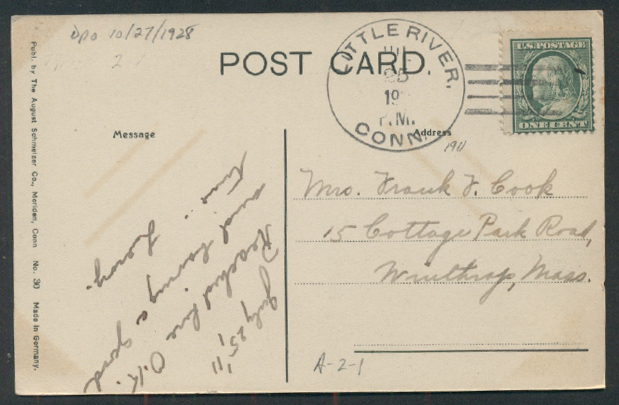 DPO 10/27/1928
POST CARD.
LITTLE RIVER,
JUL
25
19
P.M.
CONN.
U.S. POSTAGE
ONE CENT
Publ. by The August Schmelzer Co., Meriden, Conn No. 30 Made in Germany.
Message
Address
1911
July 25, '11
Reached here O.K.
and having a good
time...
Harry.
Mrs. Frank F. Cook
15 Cottage Park Road,
Winthrop, Mass.
A-2-1